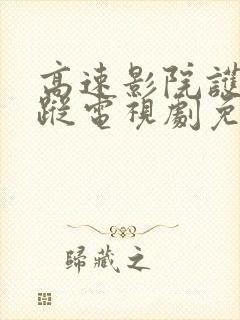 高速影院謎
蹤電視劇免
歸藏之